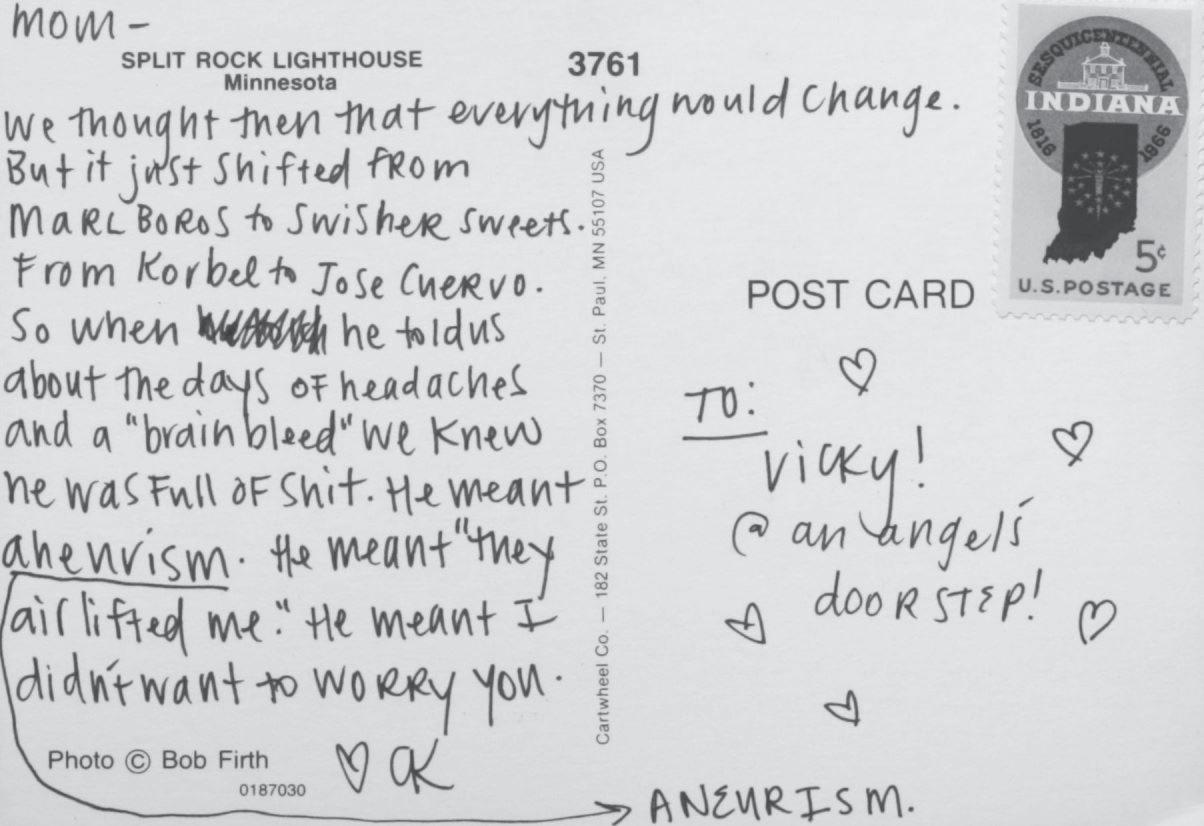 mom -
SPLIT ROCK LIGHTHOUSE
Minnesota
3761
We thought then that everything would change.
But it just shifted from
MARLBOROS to Swisher Sweets.
From Korbel to Jose Cuervo.
So when he told us
about the days of headaches
and a "brain bleed" we knew
he was full of shit. He meant
aneurism. He meant "they
air lifted me." He meant I
didn't want to WORRY you.
♡ CK
Photo © Bob Firth
0187030
ANEURISM.
Cartwheel Co. — 182 State St. P.O. Box 7370 — St. Paul. MN 55107 USA
SESQUICENTENNIAL
INDIANA
1816 1966
5¢
U.S. POSTAGE
POST CARD
TO:
Vicky!
@ an angel's
doorstep!